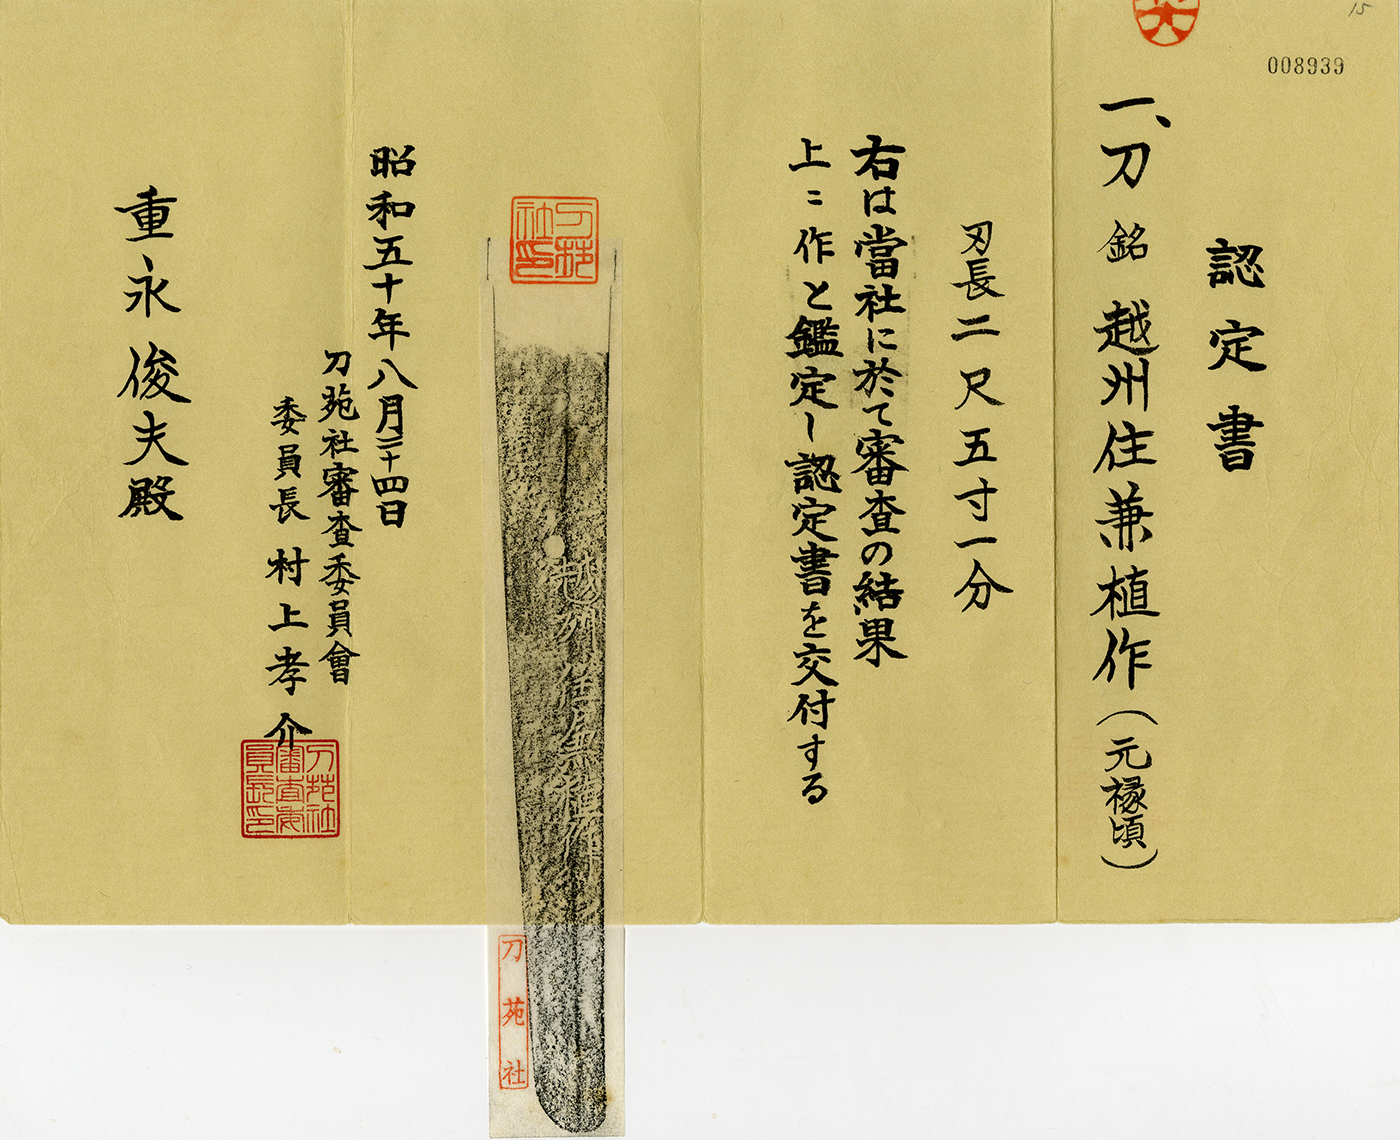 15
008939
認定書
一、刀 銘 越州住兼植作(元禄頃)
刃長二尺五寸一分
右は當社に於て審査の結果
上ニ作と鑑定し認定書を交付する
刀苑社印
越州住兼植作
刀苑社
昭和五十年八月二十四日
刀苑社審査委員會
委員長 村上孝介
刀苑社審査委員長印
重永俊夫殿